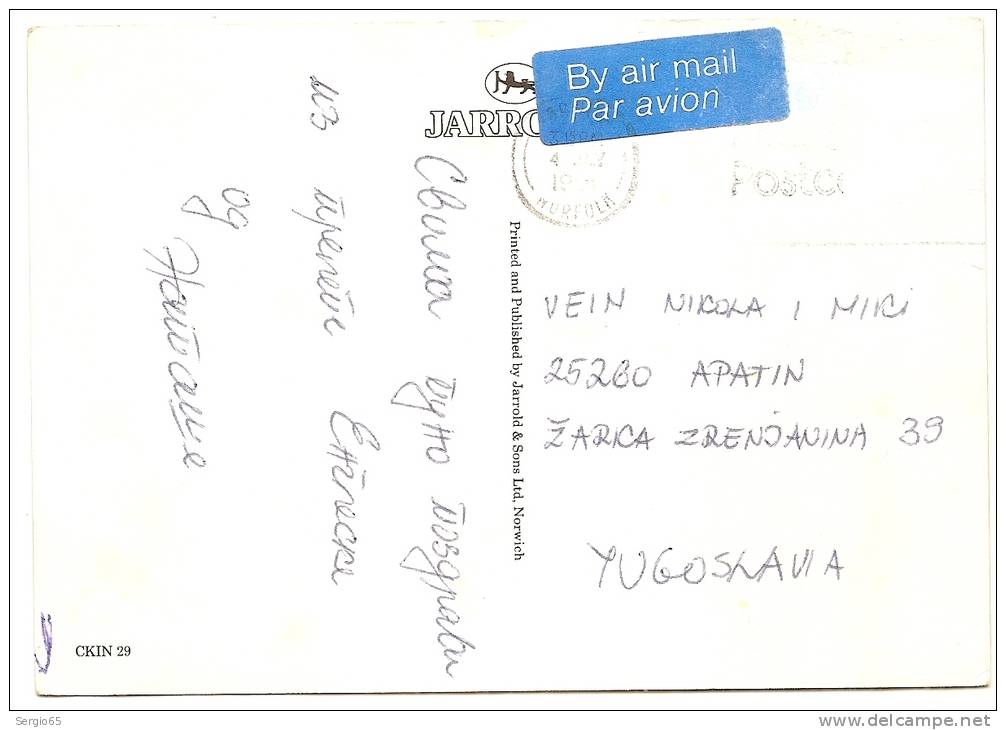 By air mail
Par avion
JARRO
NORFOLK
Postc
Printed and Published by Jarrold & Sons Ltd, Norwich
Свима пуно поздрава
из прелепе Енглеске
од
Наташе
VEIN NIKOLA I MIKI
25260 APATIN
ŽARKA ZRENJANINA 39
YUGOSLAVIA
CKIN 29
Sergio65
delcampe.net